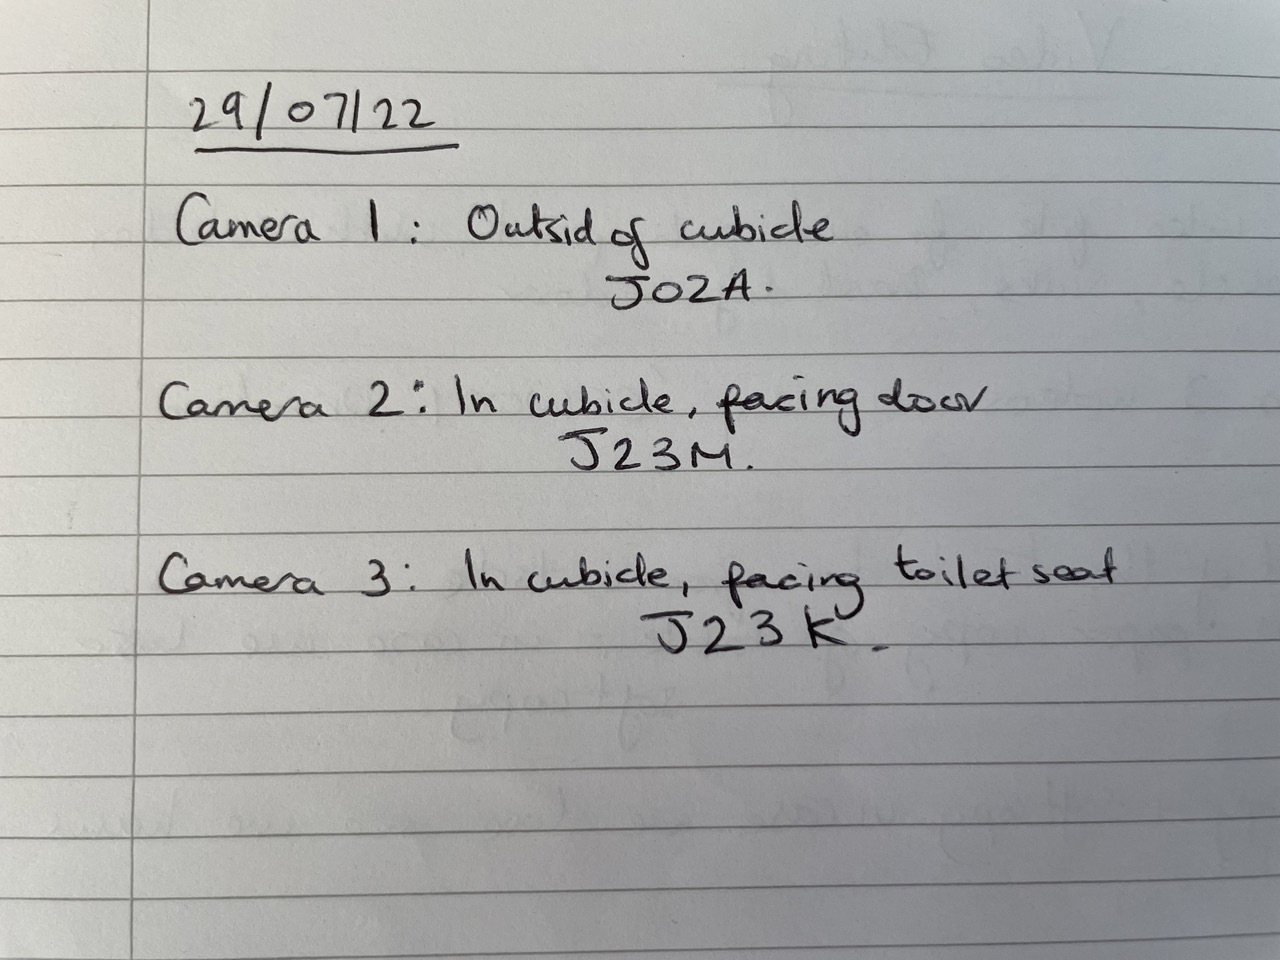 29/07/22
Camera 1: Outsid of cubicle
J02A.
Camera 2: In cubicle, facing door
J23M.
Camera 3: In cubicle, facing toilet seat
J23K.